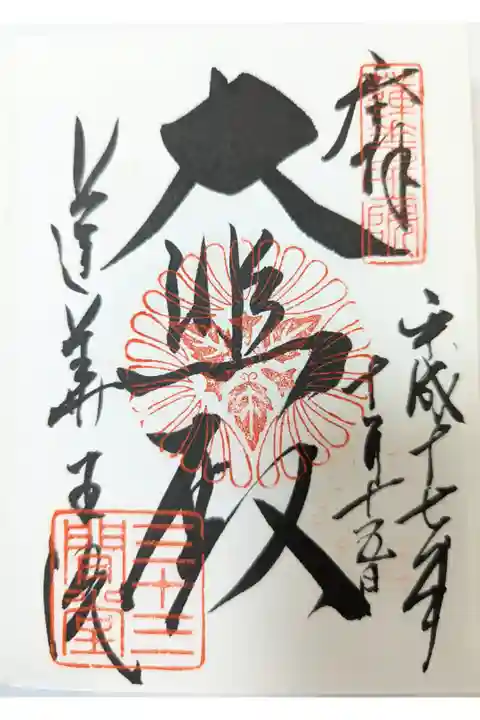 奉拝
平成十七年
十月十五日
大悲殿
蓮華王院
三十三
間堂